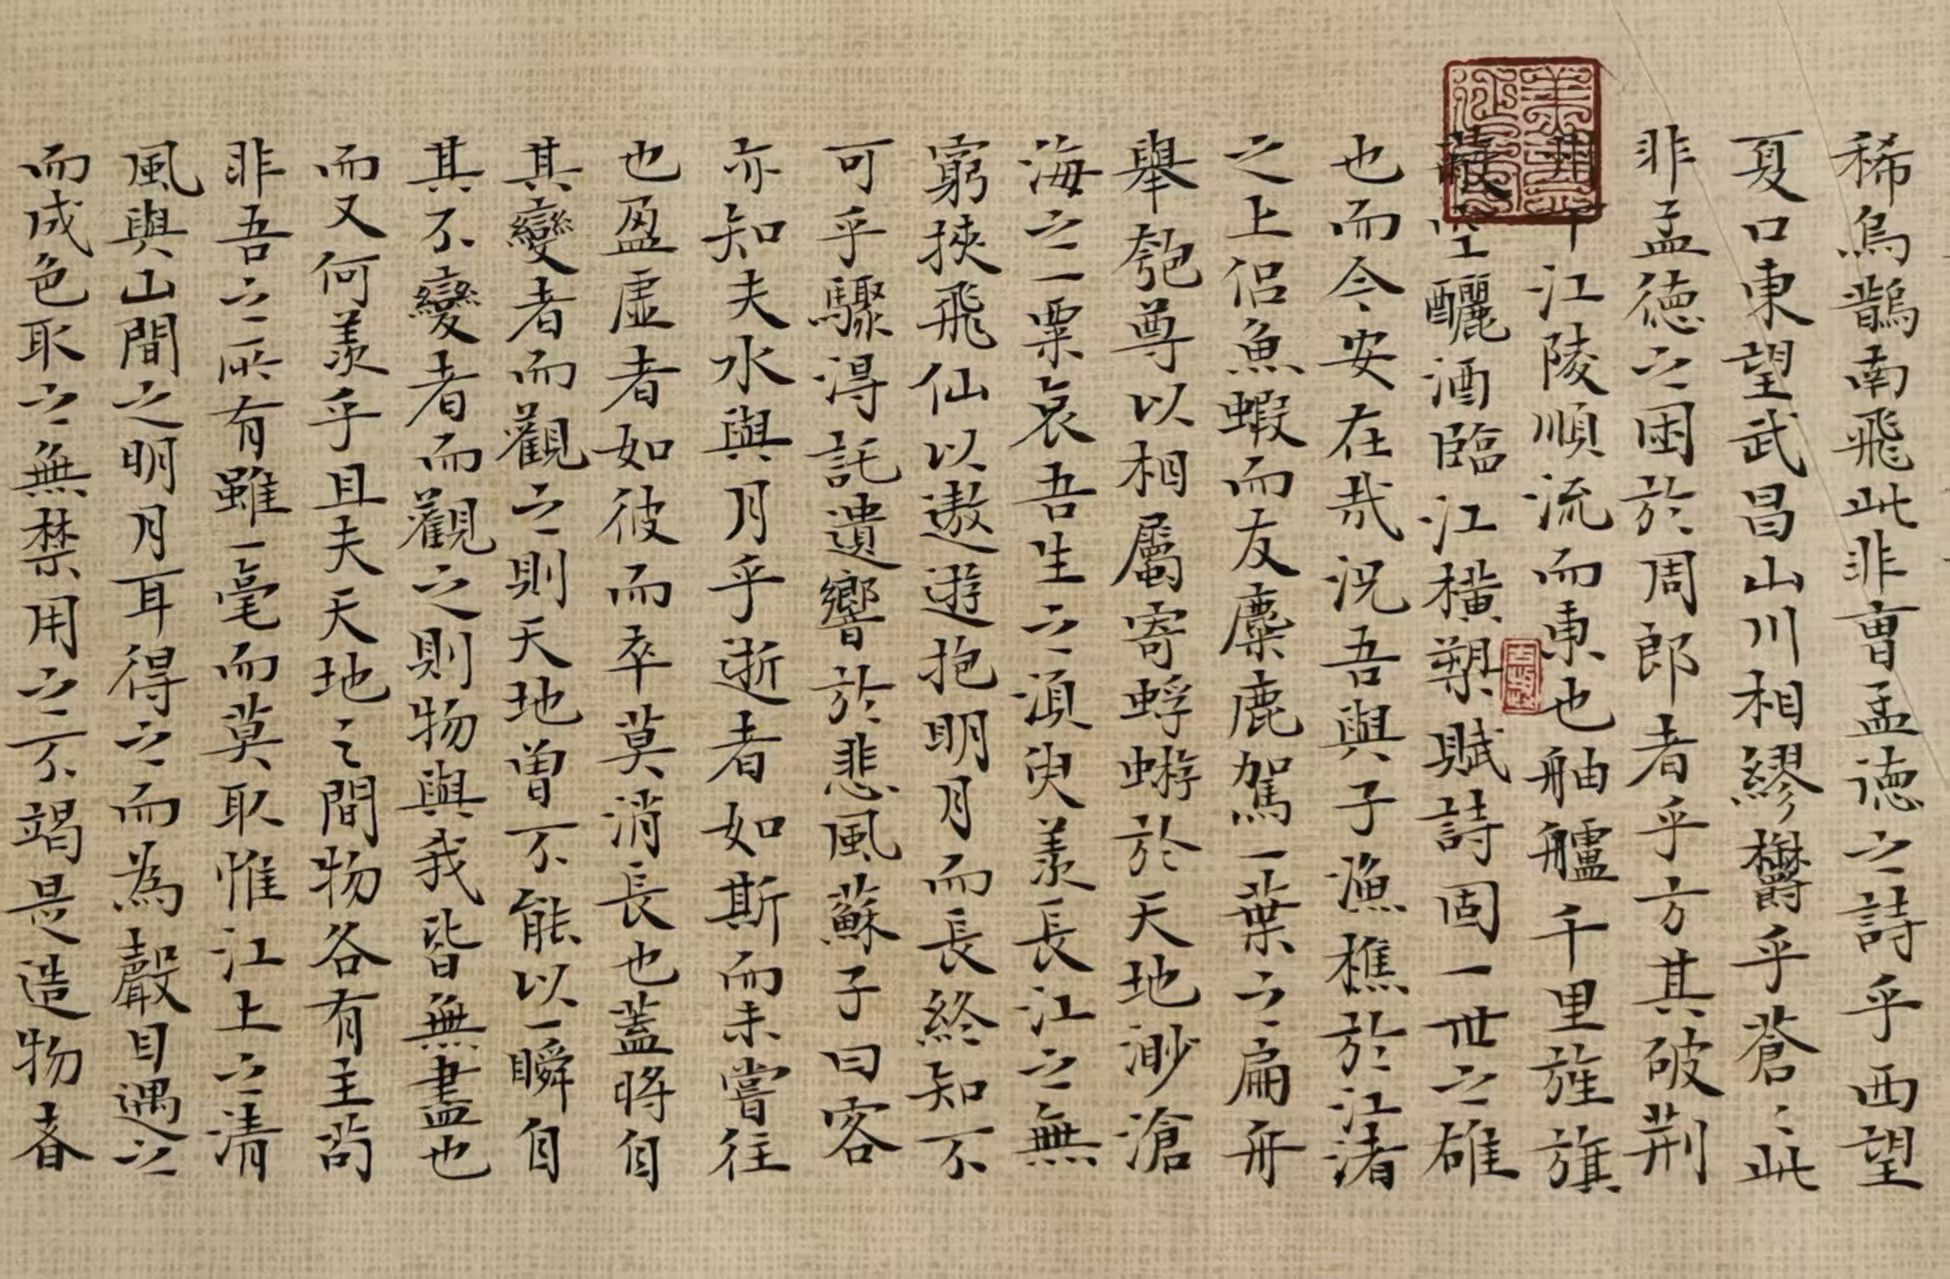 稀烏鵲南飛此非曹孟德之詩乎西望
夏口東望武昌山川相繆欝乎蒼〻此
非孟德之困於周郎者乎方其破荆
州下江陵順流而東也舳艫千里旌旗
蔽空釃酒臨江橫槊賦詩固一世之雄
也而今安在哉況吾與子漁樵於江渚
之上侶魚蝦而友麋鹿駕一葉之扁舟
舉匏尊以相屬寄蜉蝣於天地渺滄
海之一粟哀吾生之須臾羨長江之無
窮挾飛仙以遨遊抱明月而長終知不
可乎驟得託遺響於悲風蘇子曰客
亦知夫水與月乎逝者如斯而未嘗往
也盈虛者如彼而卒莫消長也蓋將自
其變者而觀之則天地曾不能以一瞬自
其不變者而觀之則物與我皆無盡也
而又何羨乎且夫天地之間物各有主苟
非吾之所有雖一毫而莫取惟江上之清
風與山間之明月耳得之而為聲目遇之
而成色取之無禁用之不竭是造物者